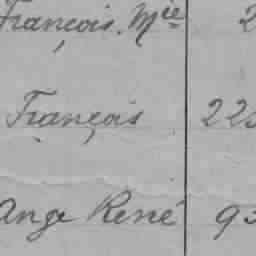 François. Mce 2
François 22
Ange René 9